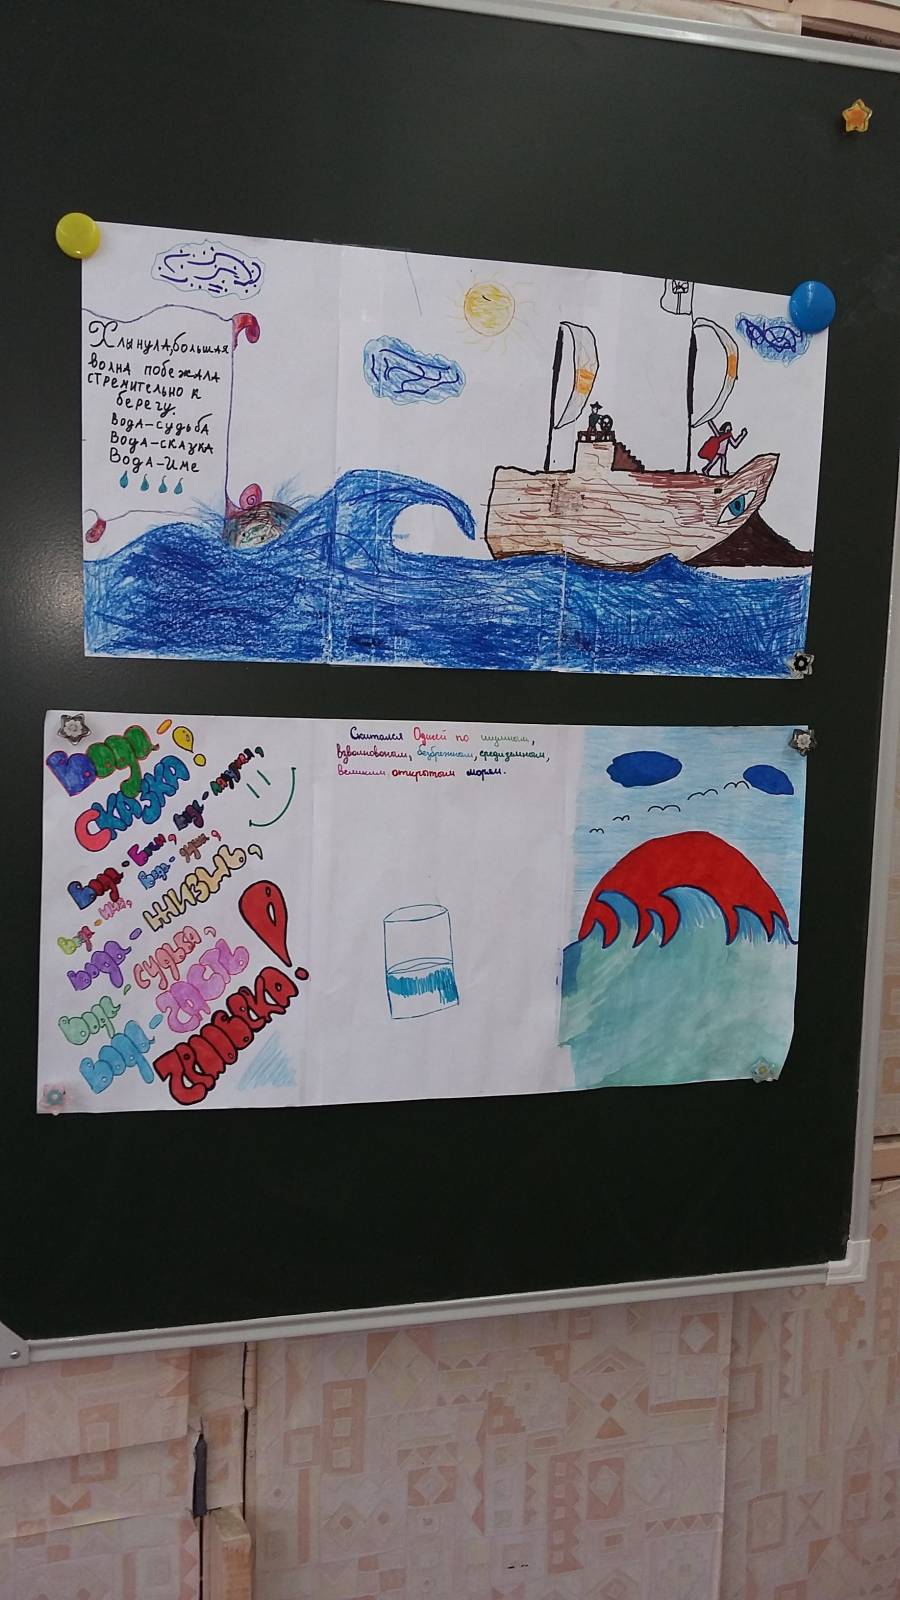 Хлынула большая
волна побежала
стремительно к
берегу.
Вода-судьба
Вода-сказка
Вода-Име
Вода-
Сказка!
Вода-Боги, вода-
Вода-имя, Вода-душа,
Вода-ЖИЗНЬ,
Вода-судьба,
Вода-
Скитался Одисей по шумным,
взволнованом, безбрежном, средиземном,
великим открытом морям.